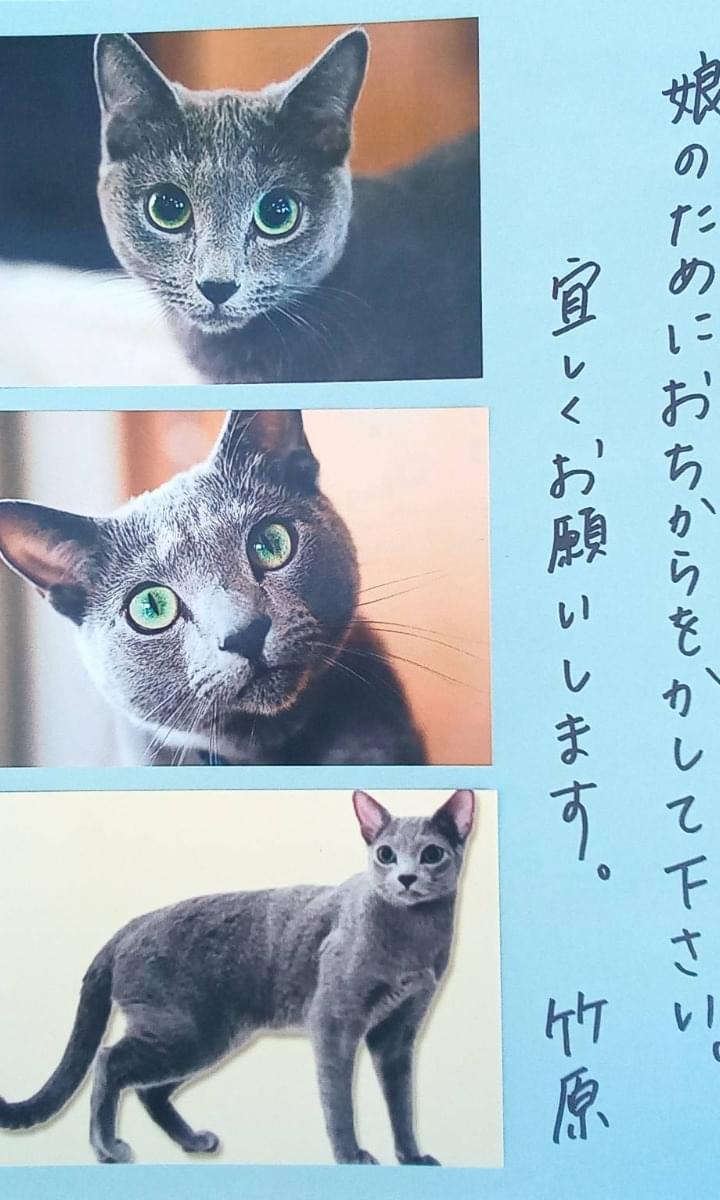 娘のためにおちからをかして下さい。
宜しくお願いします。
竹原